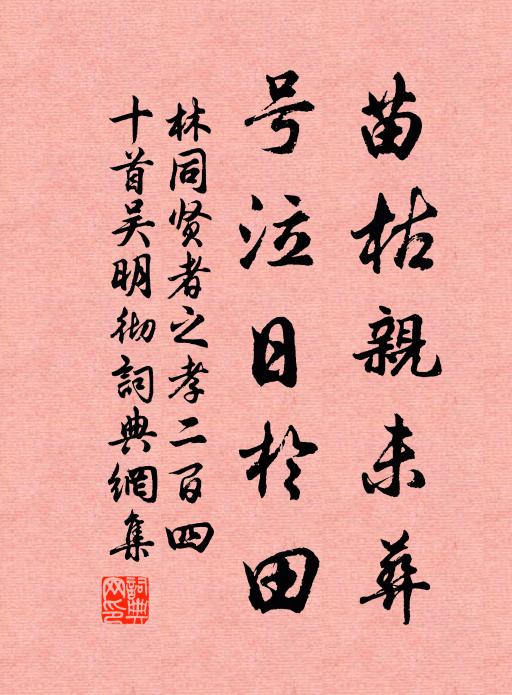 苗枯親未葬
号泣日於田
林同贤者之孝二百四
十首吴明彻詞典網集
詞典網印